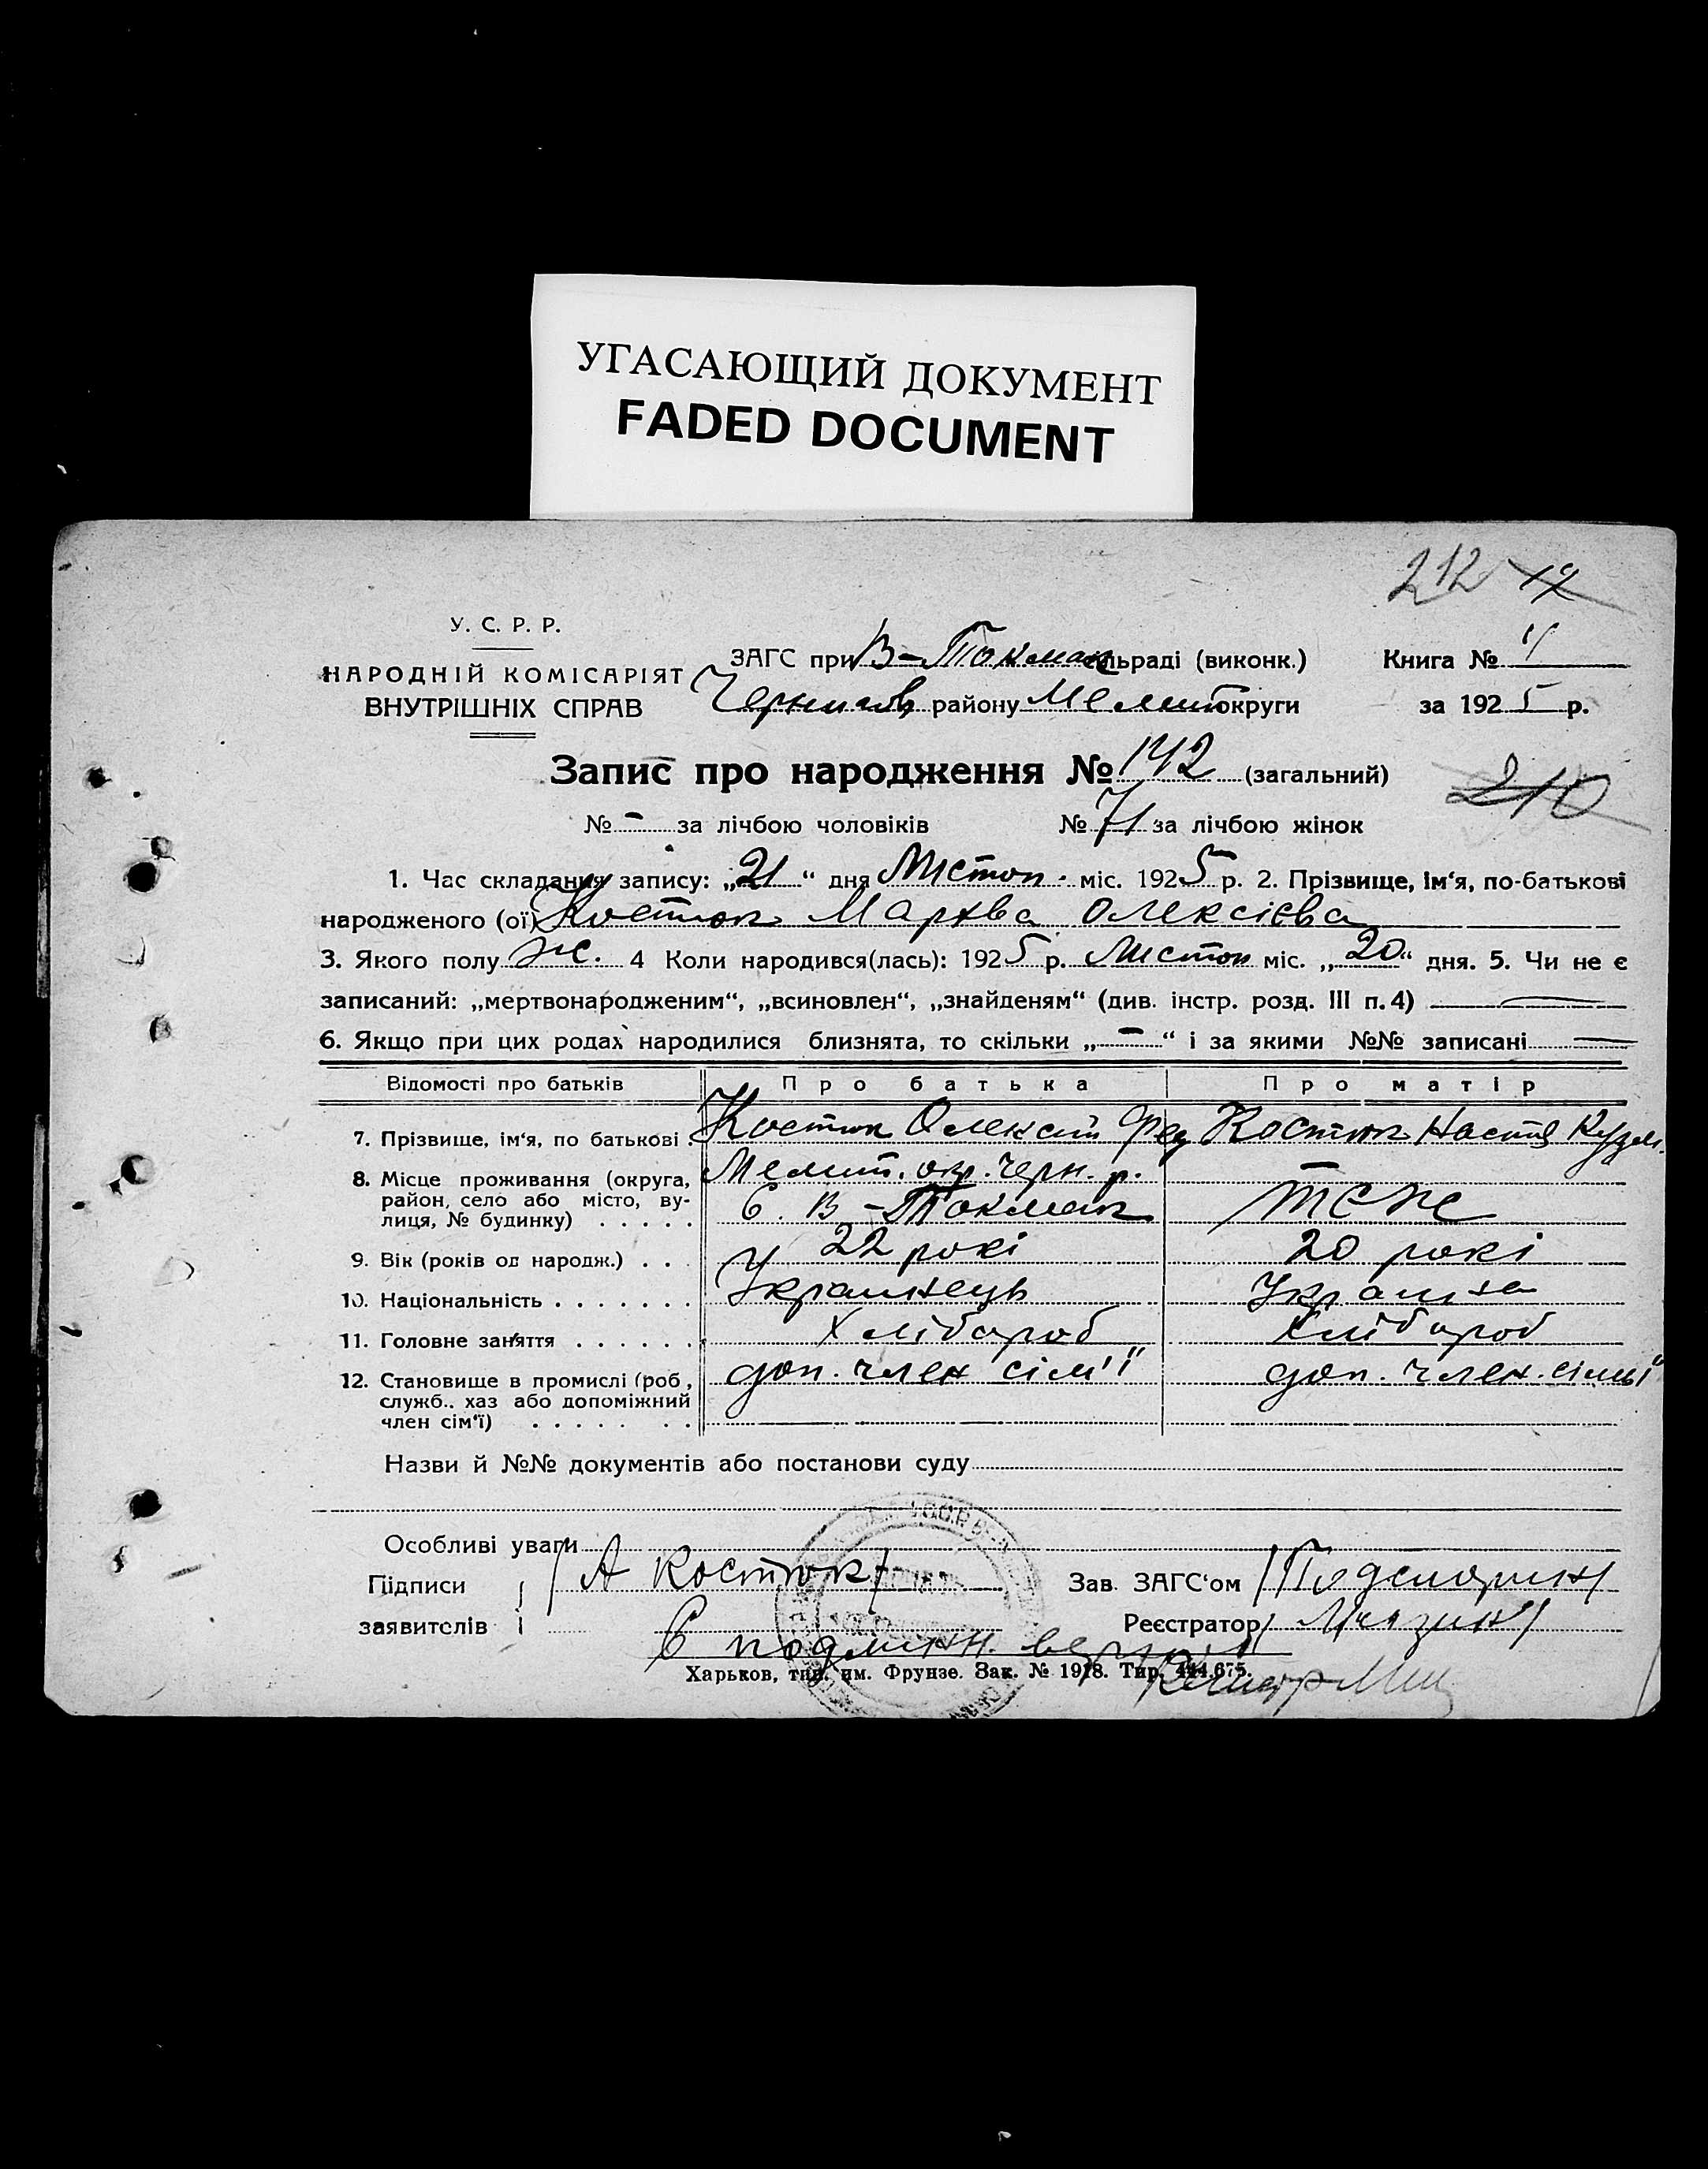 УГАСАЮЩИЙ ДОКУМЕНТ
FADED DOCUMENT
212 12
У. С. Р. Р.
НАРОДНІЙ КОМІСАРІЯТ
ВНУТРІШНІХ СПРАВ
ЗАГС при В-Токмак сільраді (виконк.) Книга №
Чернигов району Мелит округи за 1925 р.
Запис про народження № 142 (загальний)
210
№ - за лічбою чоловіків № 71 за лічбою жінок
1. Час складання запису: „21“ дня Листоп. міс. 1925 р. 2. Прізвище, ім‘я, по-батькові
народженого (ої) Костюк Марфва Олексієва
3. Якого полу ж. 4 Коли народився(лась): 1925 р. Листоп міс. „20“ дня. 5. Чи не є
записаний: „мертвонародженим“, „всиновлен“, „знайденям“ (див. інстр. розд. III п. 4) —
6. Якщо при цих родах народилися близнята, то скільки „—“ і за якими №№ записані —
Відомості про батьків Про батька Про матір
7. Прізвище, ім‘я, по батькові . Костюк Олексий Фед Костюк Настя Кузм.
8. Місце проживання (округа, район, село або місто, вулиця, № будинку) . . . . . Мелит. окр. Черн. р.
С. В-Токмак теж
9. Вік (років од народж.) . . . 22 рокі 20 рокі
10. Національність . . . . . . . Украинець Украинка
11. Головне заняття . . . . . . Хлібороб Хлібороб
12. Становище в промислі (роб, служб.. хаз або допоміжний член сім‘ї) . . . . . . . доп. член сім'ї доп. член. сімьї
Назви й №№ документів або постанови суду
Особливі уваги
Підписи /А Костюк/ Зав. ЗАГС‘ом
заявителів Реєстратор
С подлин. верно
Харьков, тип. им. Фрунзе. Зак. № 1918. Тир. 444.675.